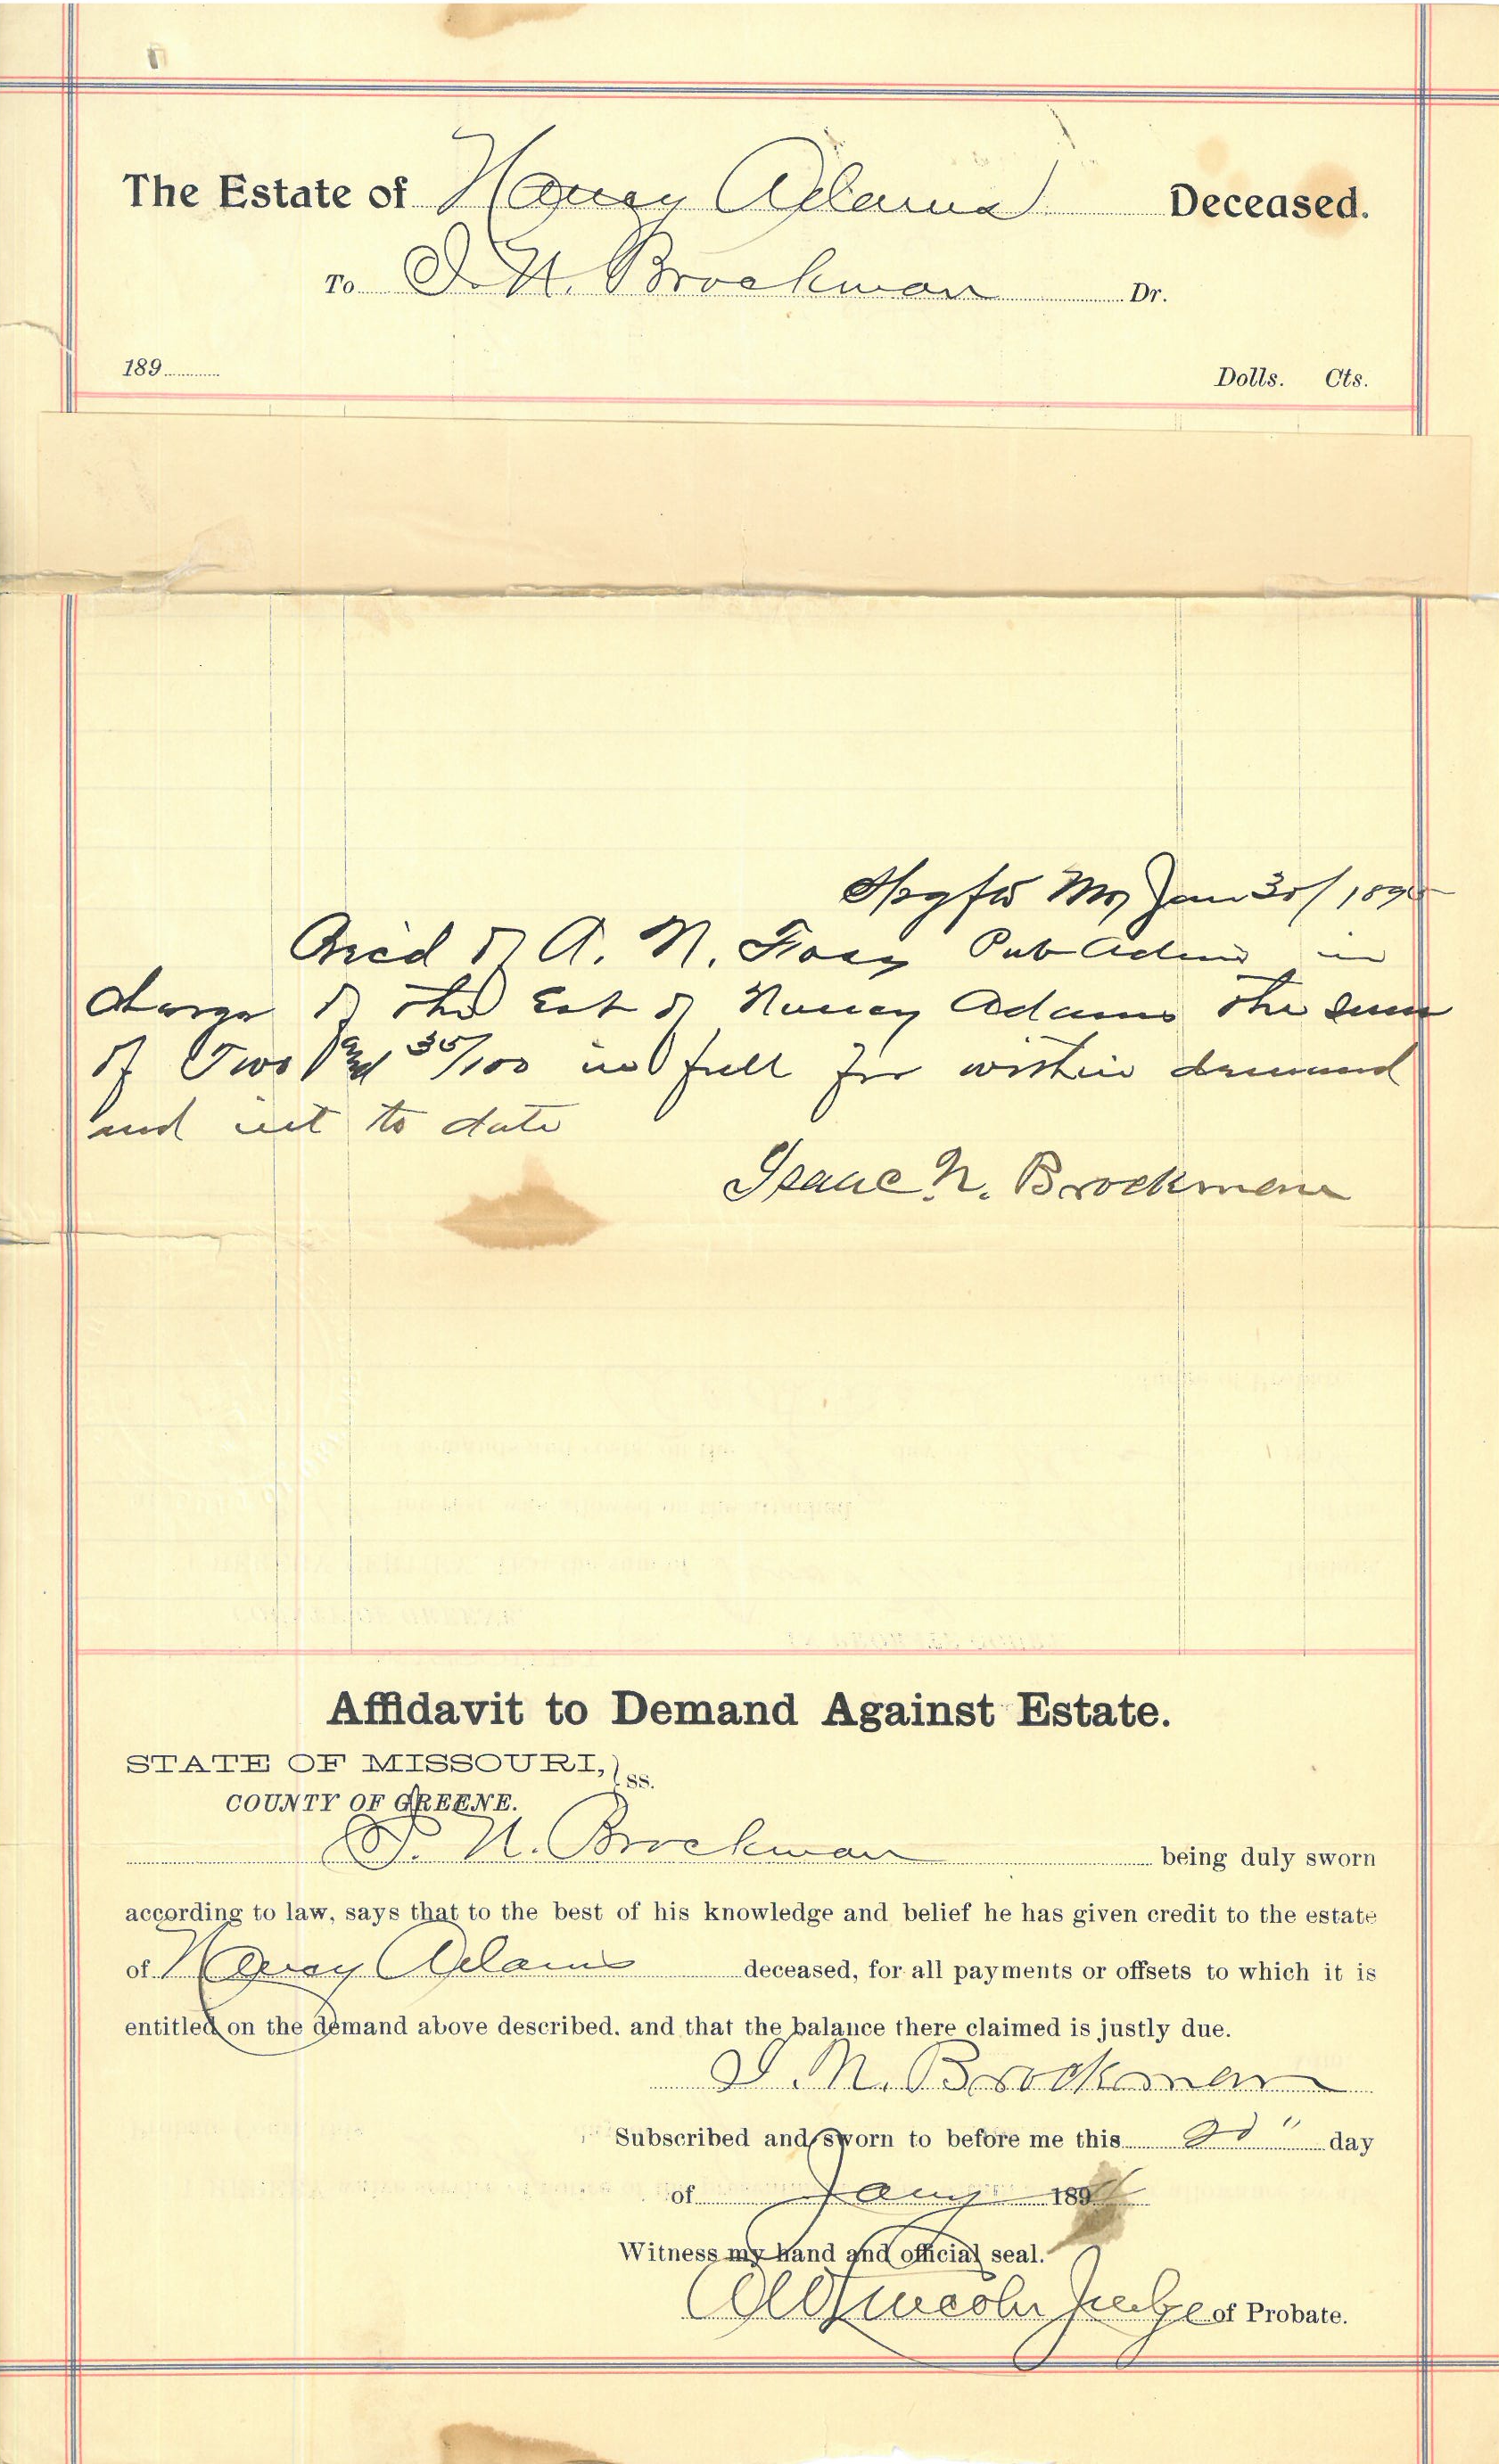 The Estate of Nancy Adams Deceased.
To I. N. Brockman Dr.
189 Dolls. Cts.
Spgfd Mo Jan 30/189
Recd of A. N. Pub Admr in
charge of the Est of Nancy Adams the sum
of Two and 35/100 in full for within demand
and int to date
Isaac N. Brockman
Affidavit to Demand Against Estate.
STATE OF MISSOURI, } ss.
COUNTY OF GREENE.
I. N. Brockman being duly sworn
according to law, says that to the best of his knowledge and belief he has given credit to the estate
of Nancy Adams deceased, for all payments or offsets to which it is
entitled on the demand above described. and that the balance there claimed is justly due.
I. N. Brockman
Subscribed and sworn to before me this day
of Jany 189
Witness my hand and official seal.
Lincoln Judge of Probate.